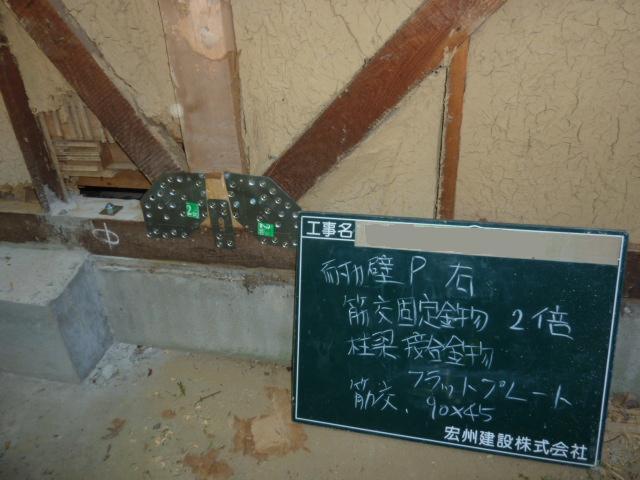 工事名
耐力壁 P 右
筋交固定金物 2倍
柱梁接合金物
フラットプレート
筋交、90×45
宏州建設株式会社